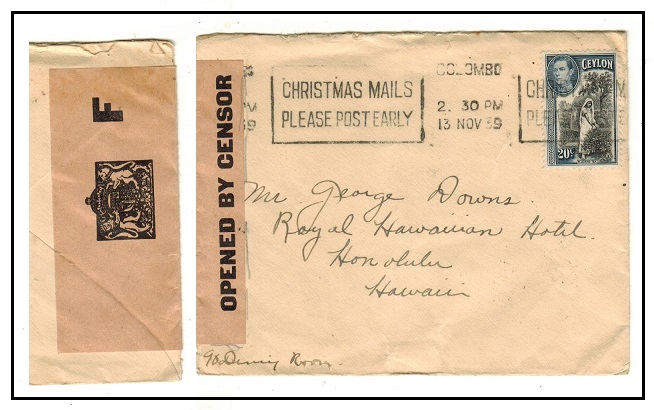 F
OPENED BY CENSOR
CHRISTMAS MAILS
PLEASE POST EARLY
COLOMBO
2. 30 PM
13 NOV 39
CEYLON
20c
Mr George Downs.
Royal Hawaiian Hotel.
Honolulu
Hawaii
Dining Room